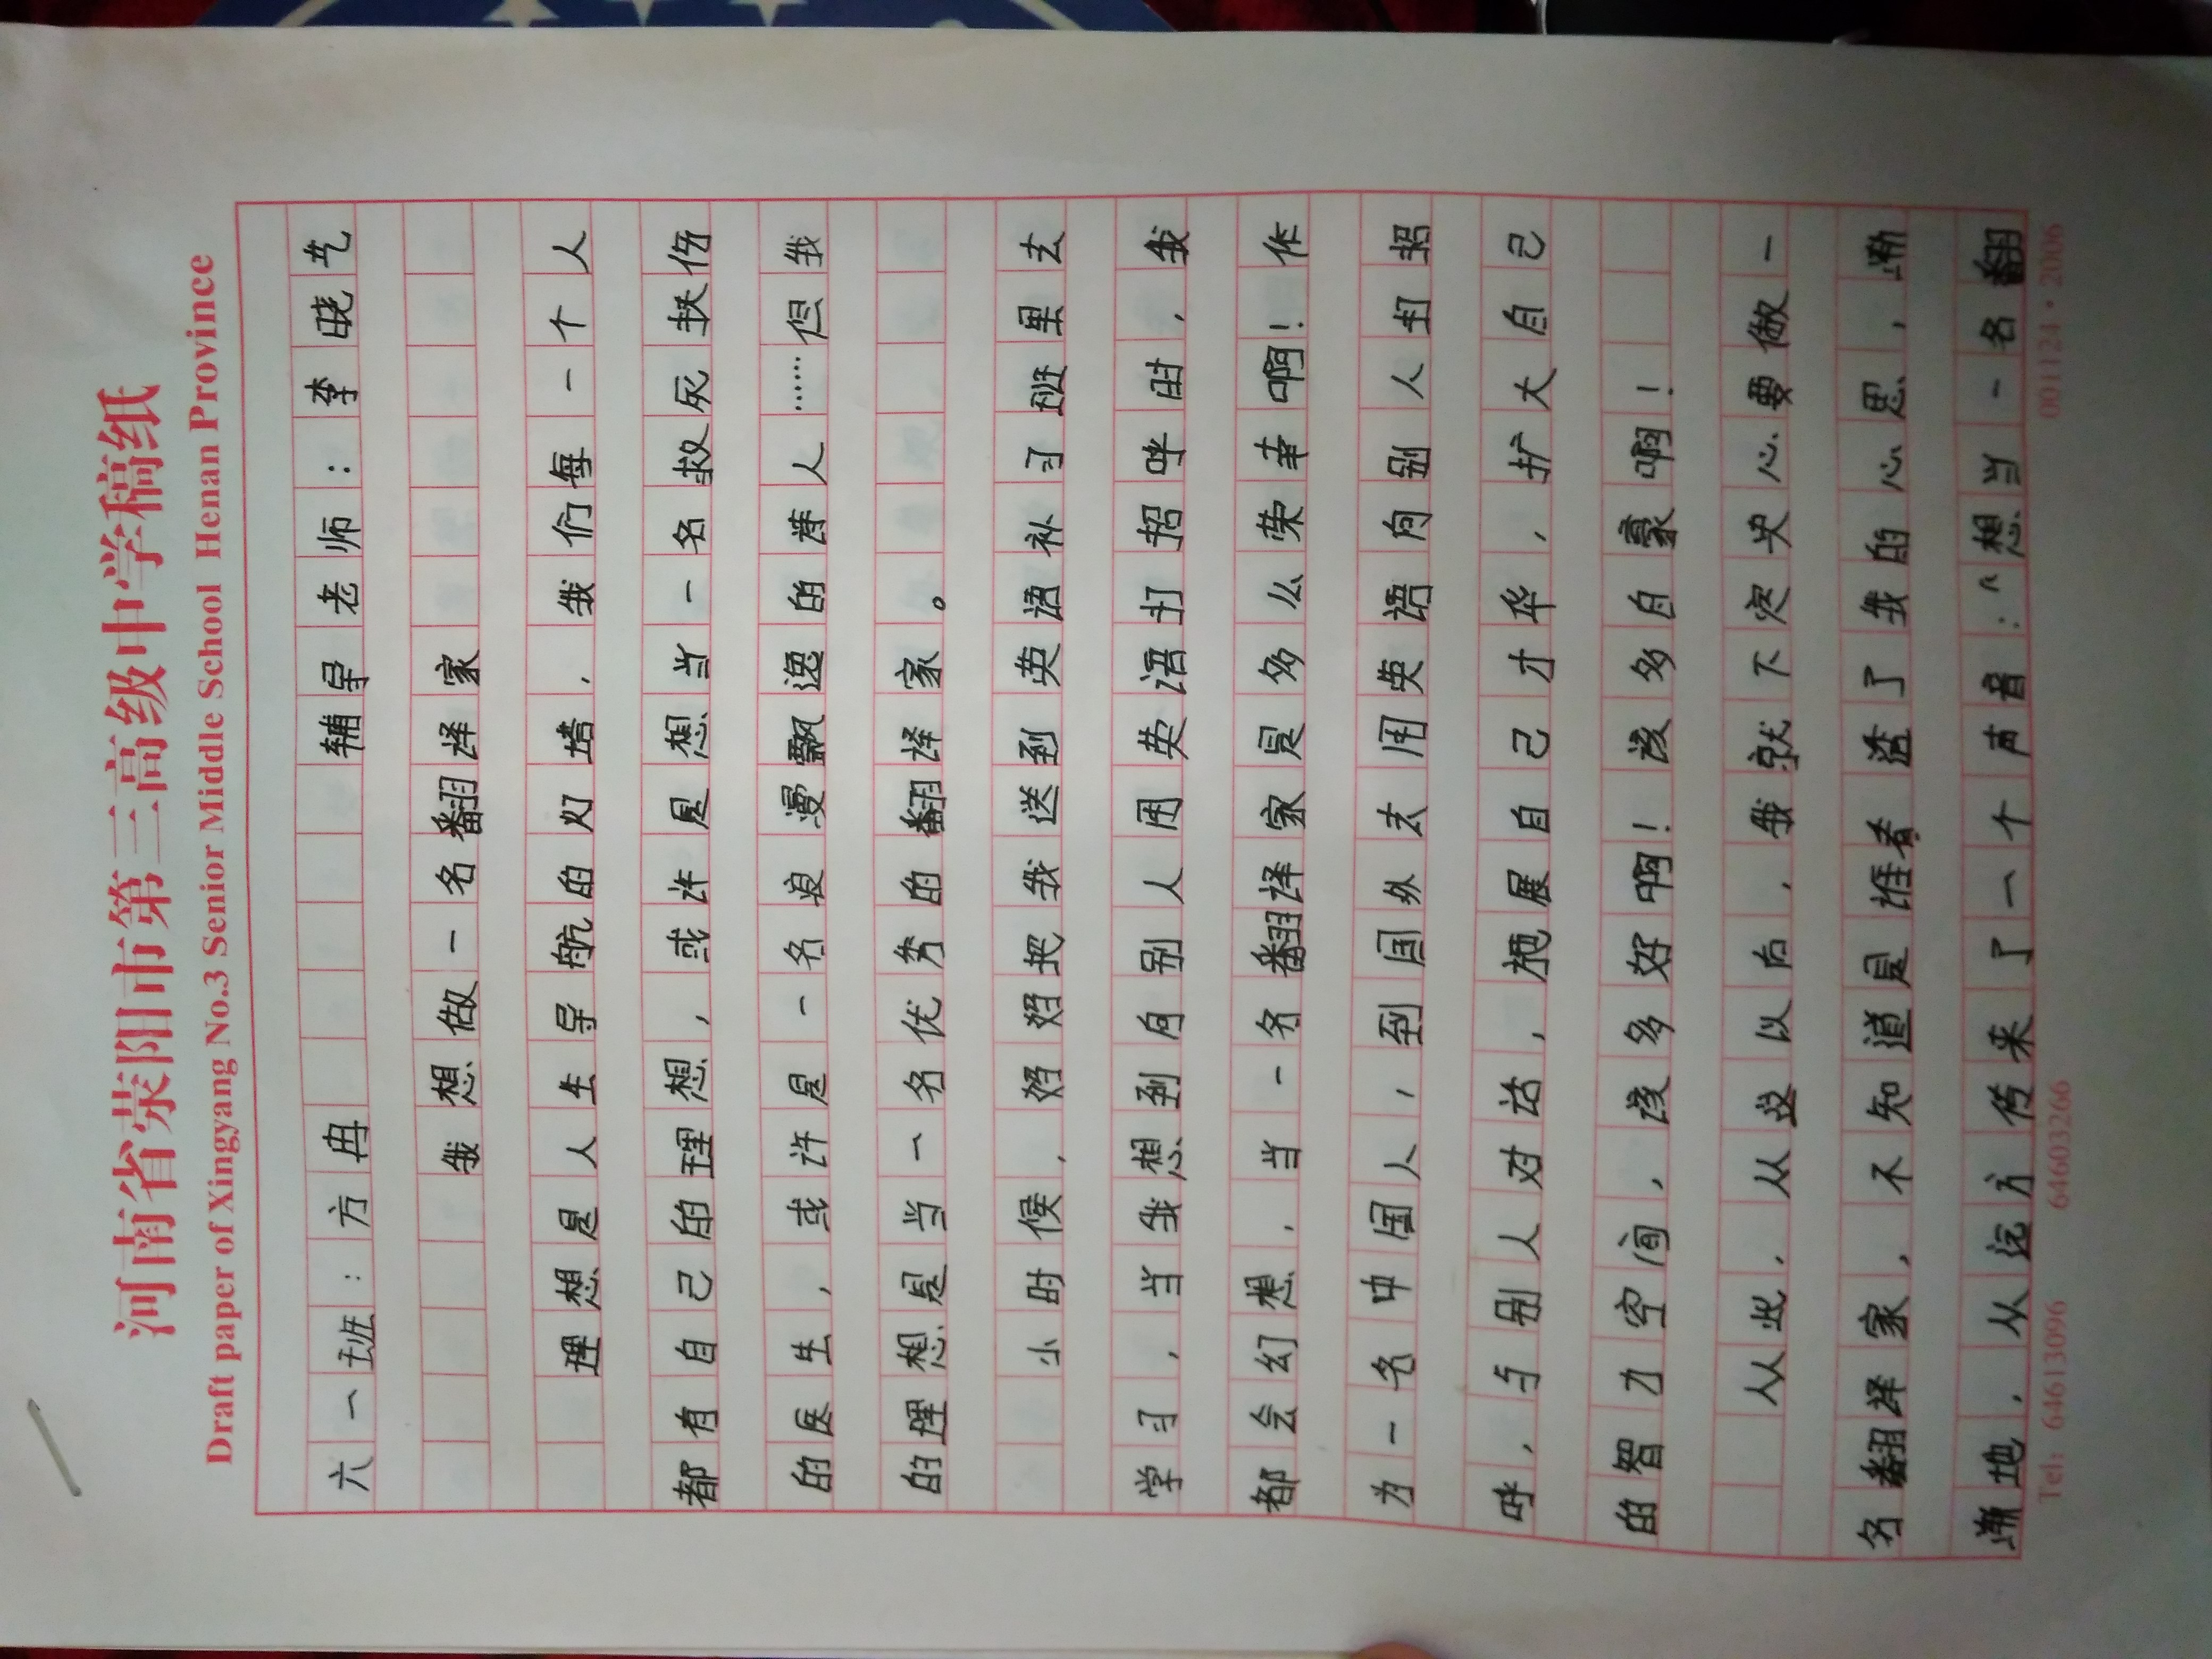 河南省荥阳市第三高级中学稿纸
Draft paper of Xingyang No.3 Senior Middle School Henan Province
六一班：方冉 辅导老师：李晓艺
我想做一名翻译家
理想是人生导航的灯塔，我们每一个人
都有自己的理想，或许是想当一名救死扶伤
的医生，或许是一名浪漫飘逸的诗人……但我
的理想是当一名优秀的翻译家。
小时候，妈妈把我送到英语补习班里去
学习，当我想到向别人用英语打招呼时，我
都会幻想，当一名翻译家是多么荣幸啊！作
为一名中国人，到国外去用英语向别人打招
呼，与别人对话，施展自己才华，扩大自己
的智力空间，该多好啊！该多自豪啊！
从此，从这以向，我就下决心要做一
名翻译家，不知道是谁看透了我的心思，渐
渐地，从远方传来了一个声音：“想当一名翻
Tel: 64613096 64603266 001124·2006